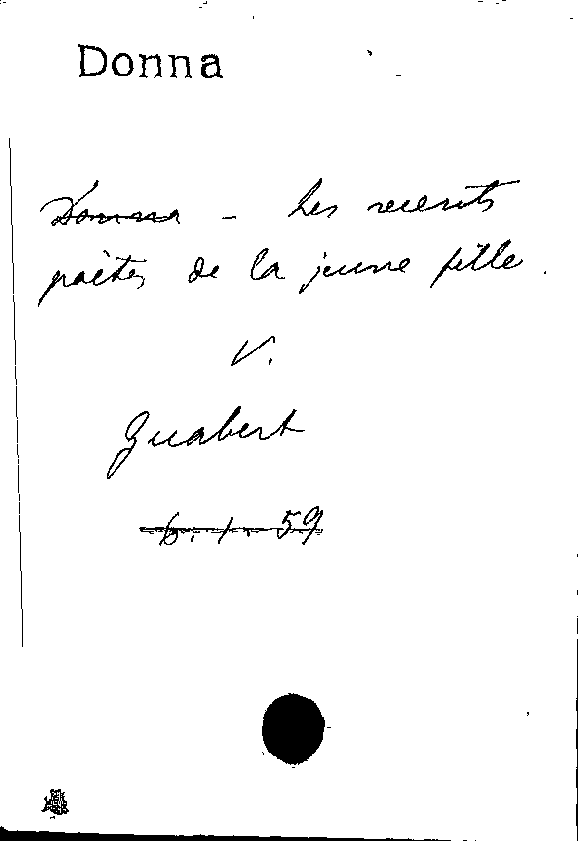 Donna
Donna - Les recents
poètes de la jeune fille.
V.
Guabert
6. 1. 59